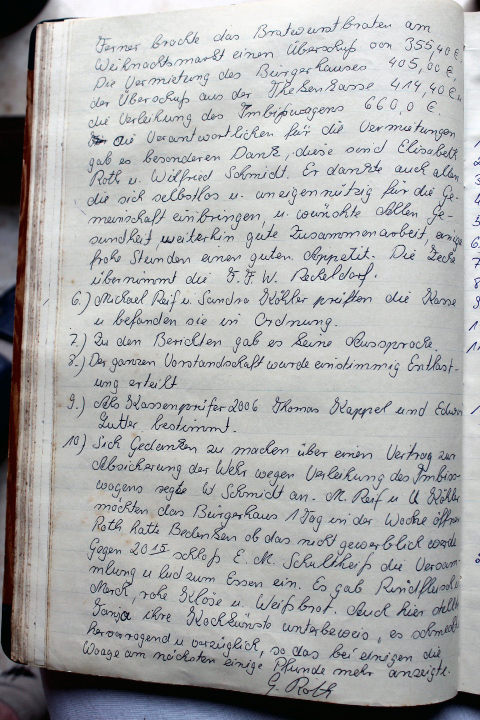 Ferner brachte das Bratwurstbraten am
Weihnachtsmarkt einen Überschuß von 355,40 €.
Die Vermietung des Bürgerhauses 405,00 €,
der Überschuß aus der Thekenkasse 414,40 € u.
die Verleihung des Imbißwagens 660,0 €.
die Verantwortlichen für die Vermietungen
gab es besonderen Dank, diese sind Elisabeth
Roth u. Wilfried Schmidt. Er dankte auch allen
die sich selbstlos u. uneigennützig für die Ge-
meinschaft einbringen, u. wünschte Allen Ge-
sundheit weiterhin gute Zusammenarbeit, einige
frohe Stunden einen guten Appetit. Die Zeche
übernimmt die F.F.W. Reckeldorf.
6.) Michael Reif u. Sandra Köhler prüften die Kasse
u. befanden sie in Ordnung.
7.) Zu den Berichten gab es keine Aussprache.
8.) Der ganzen Vorstandschaft wurde einstimmig Entlast-
ung erteilt
9.) Als Kassenprüfer 2006 Thomas Kappel und Edwin
Lutter bestimmt.
10.) Sich Gedanken zu machen über einen Vertrag zur
Absicherung der Wehr wegen Verleihung des Imbiss-
wagens regte W Schmidt an. M. Reif u. U Köhler
möchten das Bürgerhaus 1 Tag in der Woche öffnen
Roth hatte Bedenken ob das nicht gewerblich werde
Gegen 20 15 schloß E. M. Schultheiß die Versam-
mlung u lud zum Essen ein. Es gab Rindfleisch
rohe Klöse u. Weißbrot. Auch hier stellte
Tanja ihre Kochkünste unterbeweis, es schmeckte
hervorragend u vorzüglich, so das bei einigen die
Waage am nächsten einige Pfunde mehr anzeigte.
G. Roth